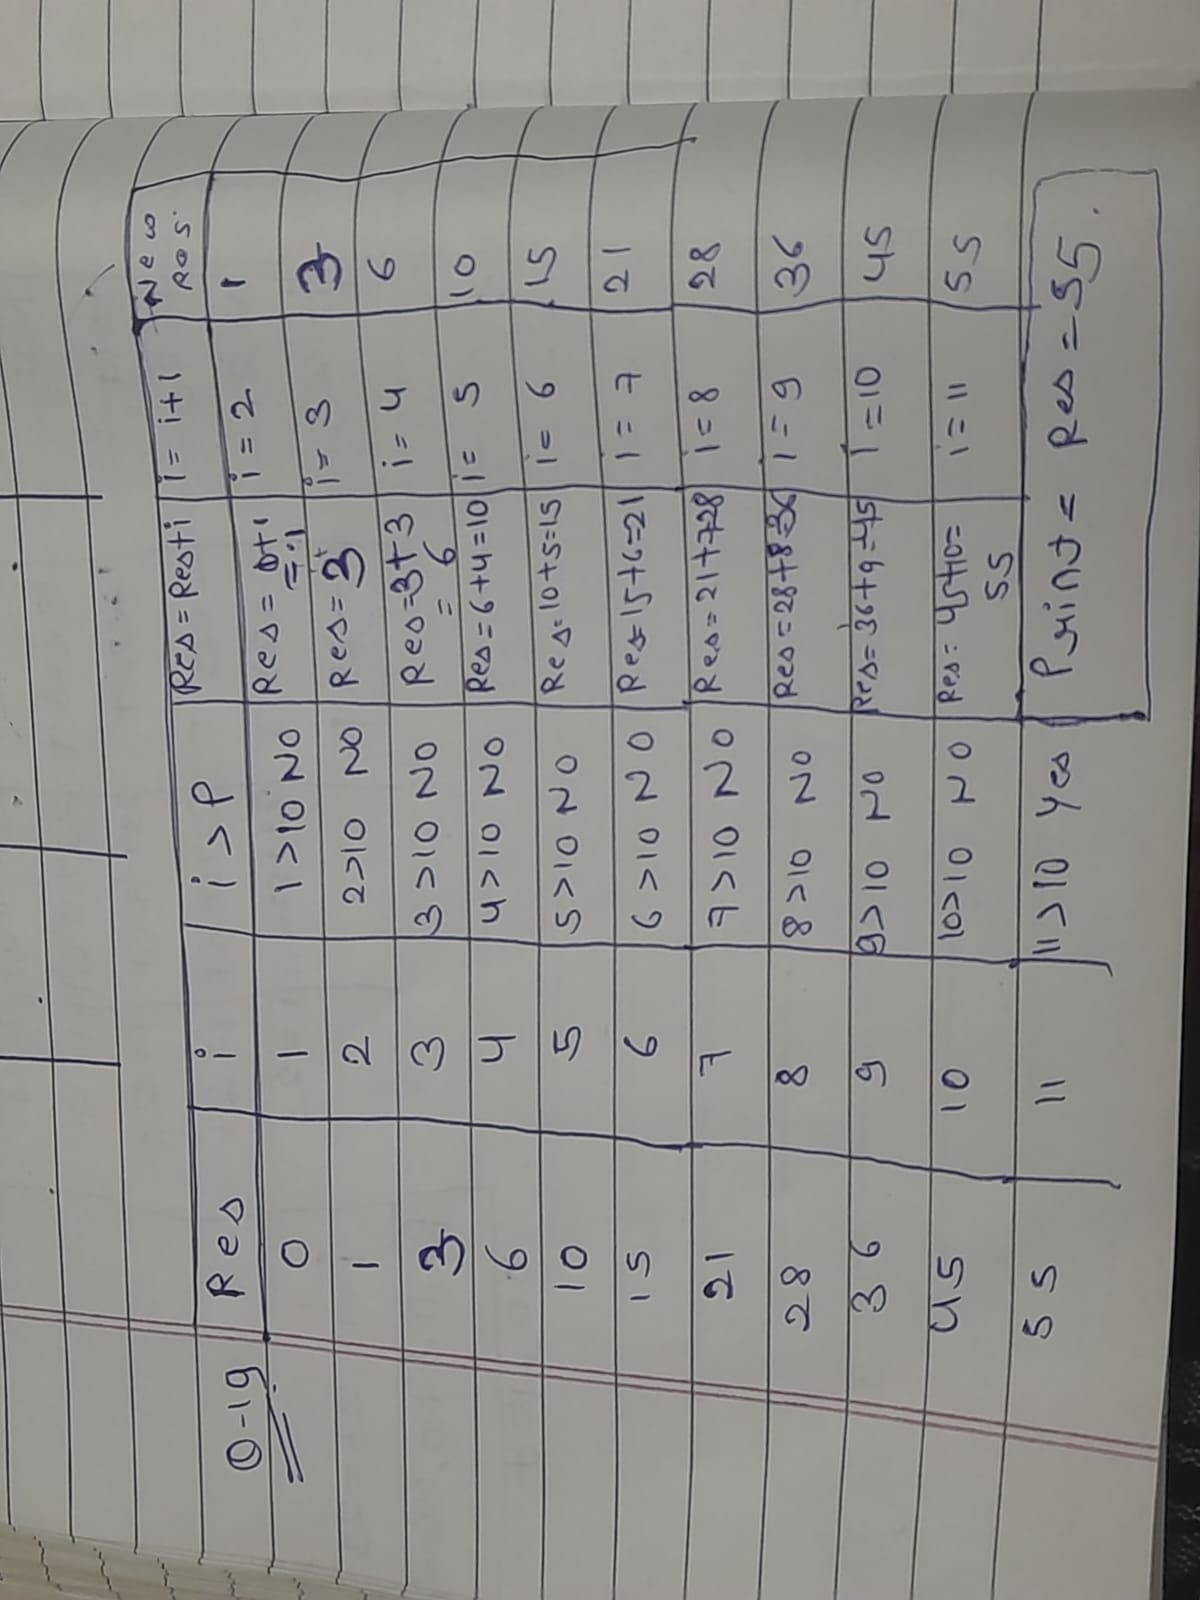 Q-19
Res i i > P Res = Res+i i = i+1 New Res.
0 1 1 >10 NO Res = 0+1 = 1 i = 2 1
1 2 2>10 NO Res = 3 i = 3 3
3 3 3 >10 NO Res=3+3 = 6 i = 4 6
6 4 4 >10 NO Res = 6+4=10 i = 5 10
10 5 5>10 NO Res= 10+5=15 i = 6 15
15 6 6 >10 NO Res= 15+6=21 i = 7 21
21 7 7 >10 NO Res = 21+7=28 i = 8 28
28 8 8 >10 NO Res = 28+8=36 i = 9 36
36 9 9> 10 NO Res= 36+9=45 i =10 45
45 10 10>10 NO Res = 45+10= 55 i = 11 55
55 11 11>10 Yes Print = Res = 55.